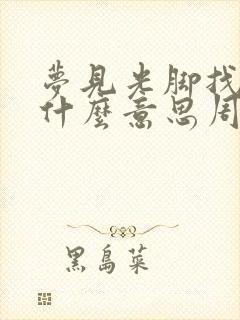 夢見光脚找
什麼意思周
黑島菜